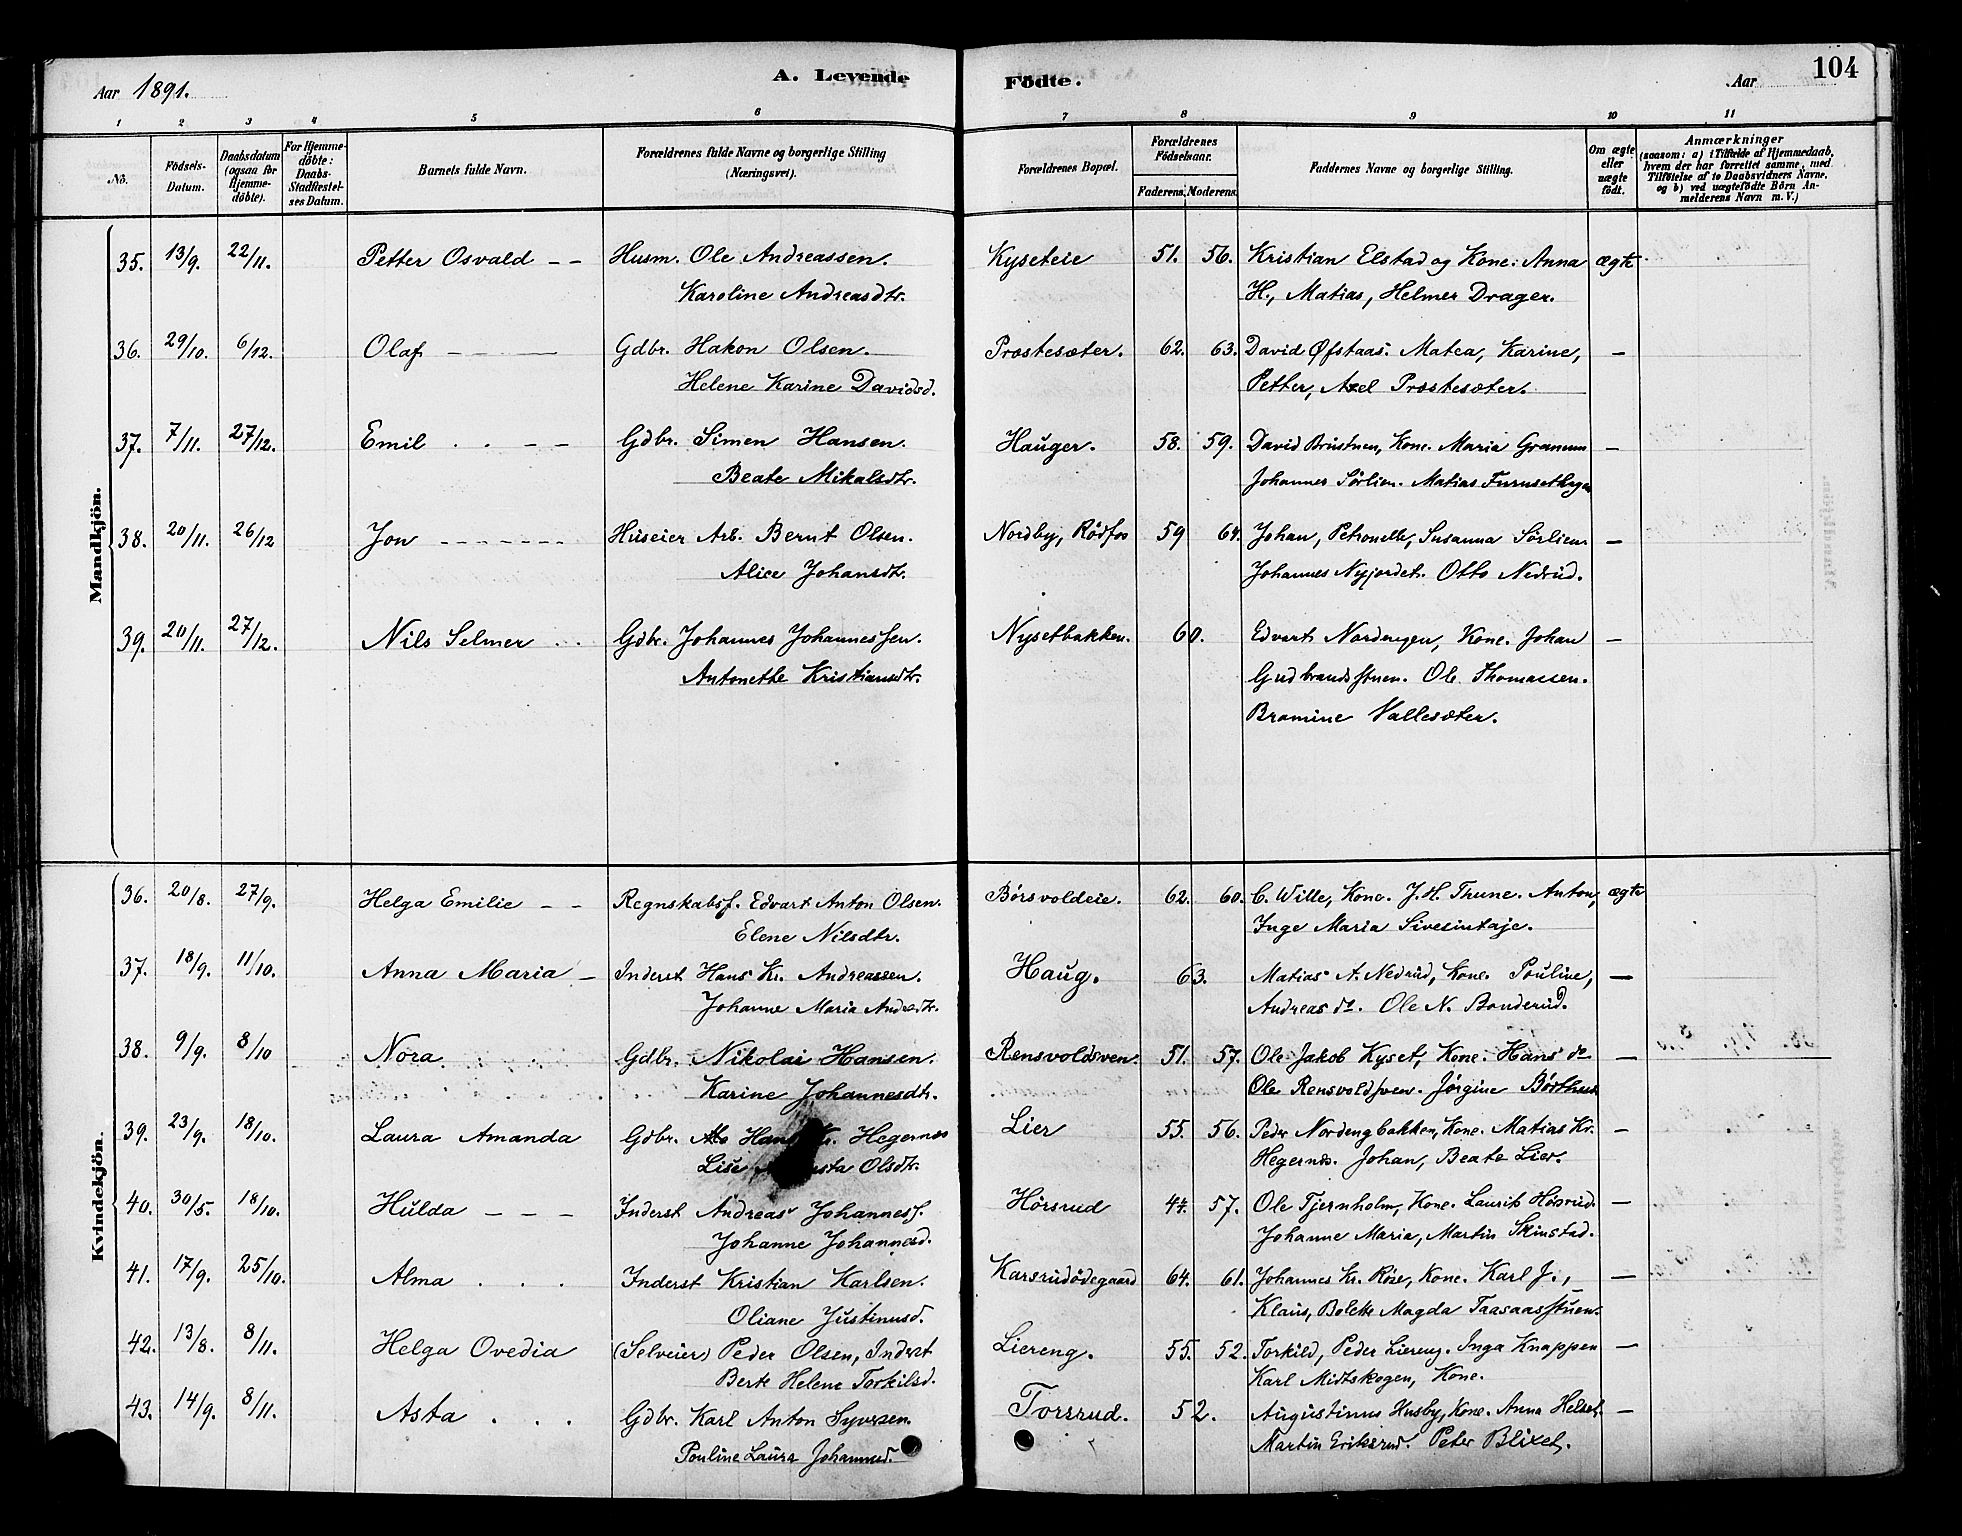 Aar 1891. A. Levende Födte. Aar 104
1 2 3 4 5 6 7 8 9 10 11
No. Födsels-Datum. Daabsdatum (ogsaa for Hjemme-döbte). For Hjemme-döbte: Daabs-Stadfæstel-ses Datum. Barnets fulde Navn. Forældrenes fulde Navne og borgerlige Stilling (Næringsvei). Forældrenes Bopæl. Forældrenes Födselsaar. Faderens. Moderens. Faddernes Navne og borgerlige Stilling. Om ægte eller uægte födt. Anmærkninger (saasom: a) i Tilfælde af Hjemmedaab, hvem der har forrettet samme, med Tilföielse af to Daabsvidners Navne, og b) ved uægtefödte Börn An-melderens Navn m. V.)
Mandkjön.
35. 13/9. 22/11. Petter Osvald Husm. Ole Andreassen. Kyseteie 51. 56. Kristian Elstad og Kone. Anna ægte
Karoline Andreasdtr. H., Matias, Helmer Drager.
36. 29/10. 6/12. Olaf Gdbr. Hakon Olsen. Præstesæter. 62. 63. David Øfstaas. Matea, Karine, —
Helene Karine Davidsd. Petter, Axel Præstesæter.
37. 7/11. 27/12. Emil Gdbr. Simen Hansen. Hauger. 58. 59. David Brustuen, Kone. Maria Granum —
Beate Mikalsdtr. Johannes Sørlien. Matias Furusethagen
38. 20/11. 26/12 Jon Huseier Arb. Bernt Olsen. Nordby, Rødfos 59 64. Johan, Petronelle, Susanna Sørlien. —
Alice Johansdtr. Johannes Nyjordet. Otto Nedrud.
39. 20/11. 27/12. Nils Selmer Gdbr. Johannes Johannessen. Nysetbakken. 60. Edvart Nordengen, Kone. Johan —
Antonette Kristiansdtr. Gudbrandsstuen. Ole Thomassen.
Bramine Vallesæter.
Kvindekjön.
36. 20/8. 27/9. Helga Emilie Regnskabsf. Edvart Anton Olsen. Børsvoldeie. 62. 60. C. Wille, Kone. J. H. Thune. Anton, ægte
Elene Nilsdtr. Inge Maria Sivesintaje.
37. 18/9. 11/10. Anna Maria Inderst Hans Kr. Andreassen. Haug. 63. Matias A. Nedrud, Kone. Pouline, —
Johanne Maria Andrsdtr. Andreas do. Ole N. Bonderud.
38. 9/9. 8/10 Nora. Gdbr. Nikolai Hansen. Rensvoldsven. 51. 57. Ole Jakob Kyset, Kone. Hans do —
Karine Johannesdtr. Ole Rensvoldsven. Jørgine Børthus
39. 23/9. 18/10. Laura Amanda Gdbr. Hans Kr. Hegernæs Lier 55. 56. Peder Nordengbakken, Kone. Matias Kr. —
Lise Olsdtr. Hegernæs. Johan, Beate Lier.
40. 30/5. 18/10. Hulda Inderst Andreas Johanness. Hørsrud 44. 57. Ole Tjernholm, Kone. Laurits Høsrud. —
Johanne Johannesd. Johanne Maria, Martin Skinstad.
41. 17/9. 25/10. Alma Inderst Kristian Karlsen. Karsrudødegaard 64. 61. Johannes Kr. Røise, Kone. Karl J., —
Oliane Justinusd. Klaus, Bolette Magda Taasaasstuen.
42. 13/8. 8/11. Helga Ovedia (Selveier) Peder Olsen, Inderst Liereng. 55. 52. Torkild, Peder Liereng. Inga Knappen —
Berte Helene Torkilsd. Karl Midtskogen, Kone.
43. 14/9. 8/11. Asta Gdbr. Karl Anton Syversen. Torsrud. 52. Augustinus Husby, Kone. Anna Helset. —
Pouline Laura Johannsd. Martin Eriksrud. Peter Blixet.